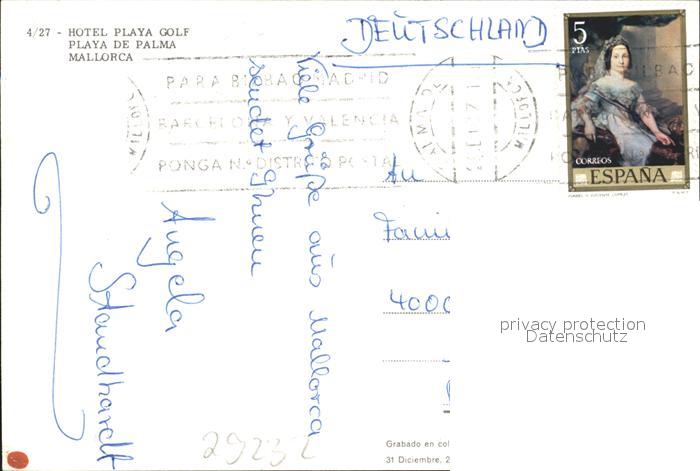 4/27 - HOTEL PLAYA GOLF
PLAYA DE PALMA
MALLORCA
DEUTSCHLAND
5
PTAS
CORREOS
ESPAÑA
PARA BILBAO MADRID
BARCELONA Y VALENCIA
PONGA N.º DISTRITO POSTAL
Viele Grüße aus Mallorca
sendet Ihnen
Angela
Standhardt
An
Fami
4000
privacy protection
Datenschutz
29232
Grabado en col
31 Diciembre, 2